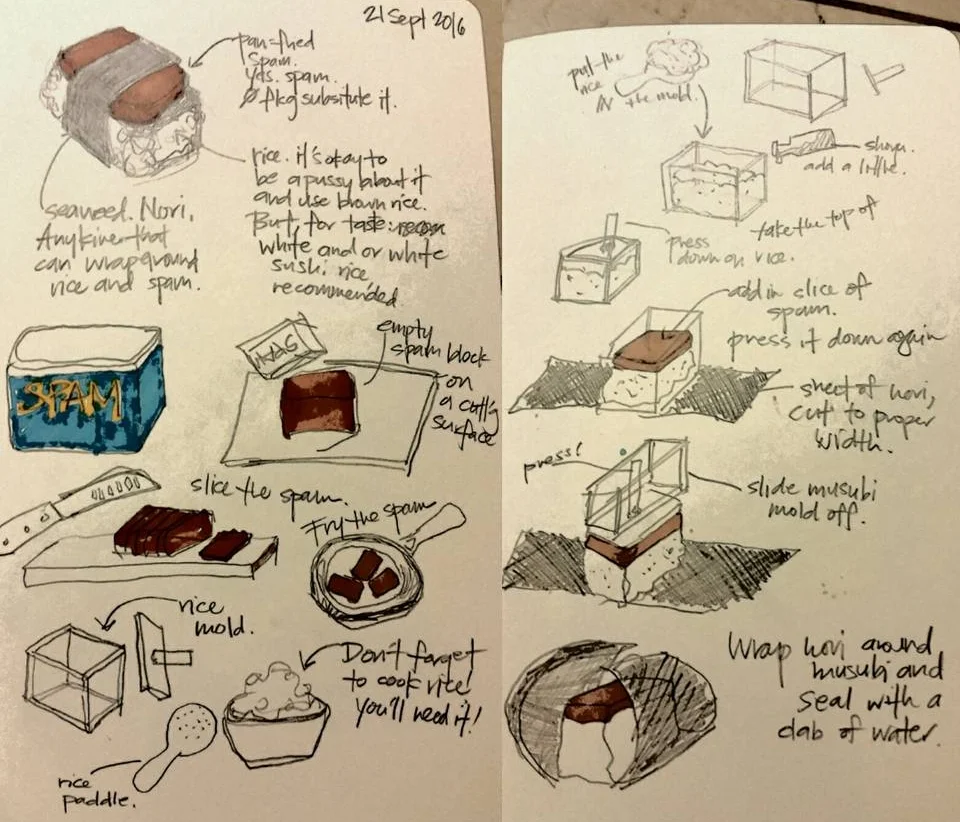 21 Sept 2016
pan-fried
Spam.
Yes. spam.
Ø fkg substitute it.
rice. it's okay to
be a pussy about it
and use brown rice.
But, for taste:
white and or white
sushi rice
recommended
seaweed. Nori,
Any kine that
can wrap around
rice and spam.
SPAM
SPAM
empty
spam block
on
a cutt'g
surface
slice the spam.
Fry the spam
rice
mold.
Don't forget
to cook rice
you'll need it!
rice
paddle.
put the
rice
IN the mold.
shoyu.
add a little.
take the top of
press
down on rice.
add in slice of
spam.
press it down again
sheet of nori,
cut to proper
width.
press!
slide musubi
mold off.
Wrap nori around
musubi and
seal with a
dab of water.